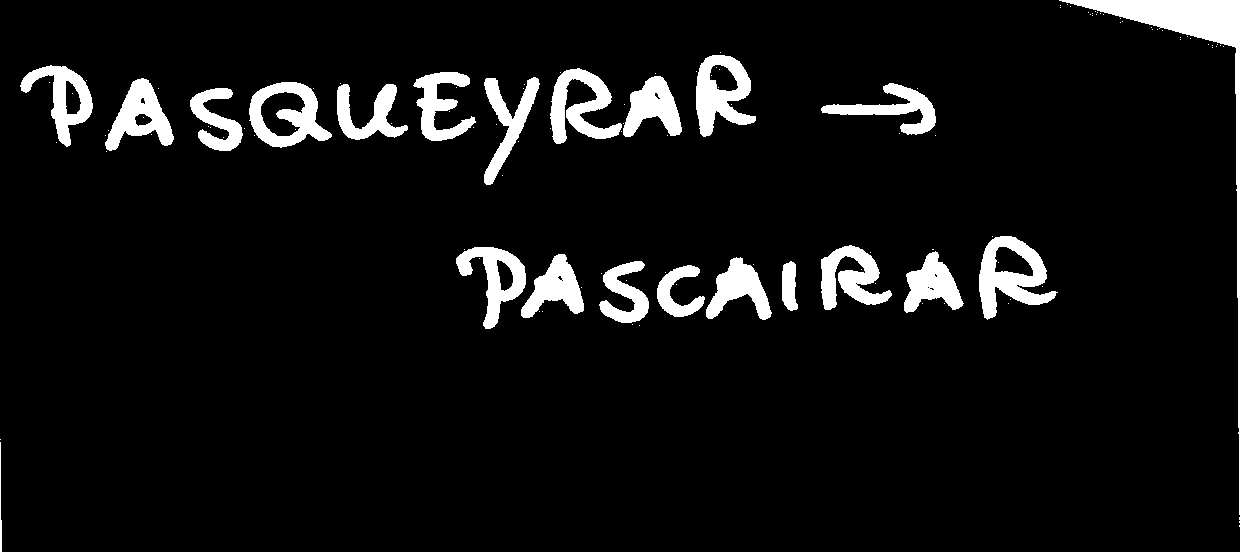 PASQUEYRAR →
PASCAIRAR